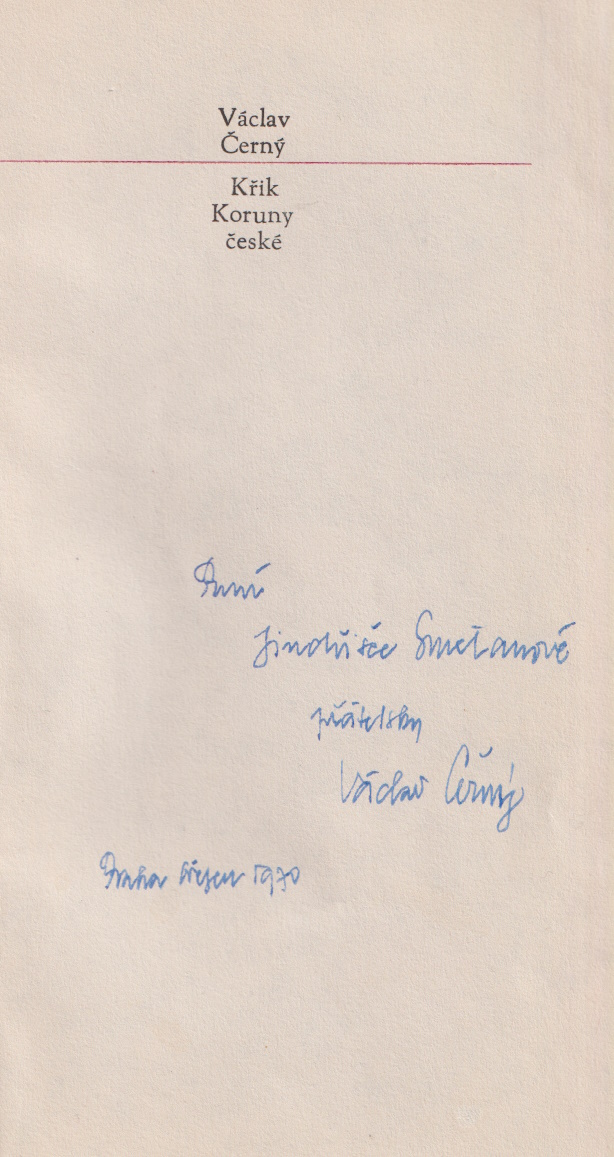 Václav
Černý
Křik
Koruny
české
Paní
Jindřišce Smetanové
přátelsky
Václav Černý
Praha březen 1970